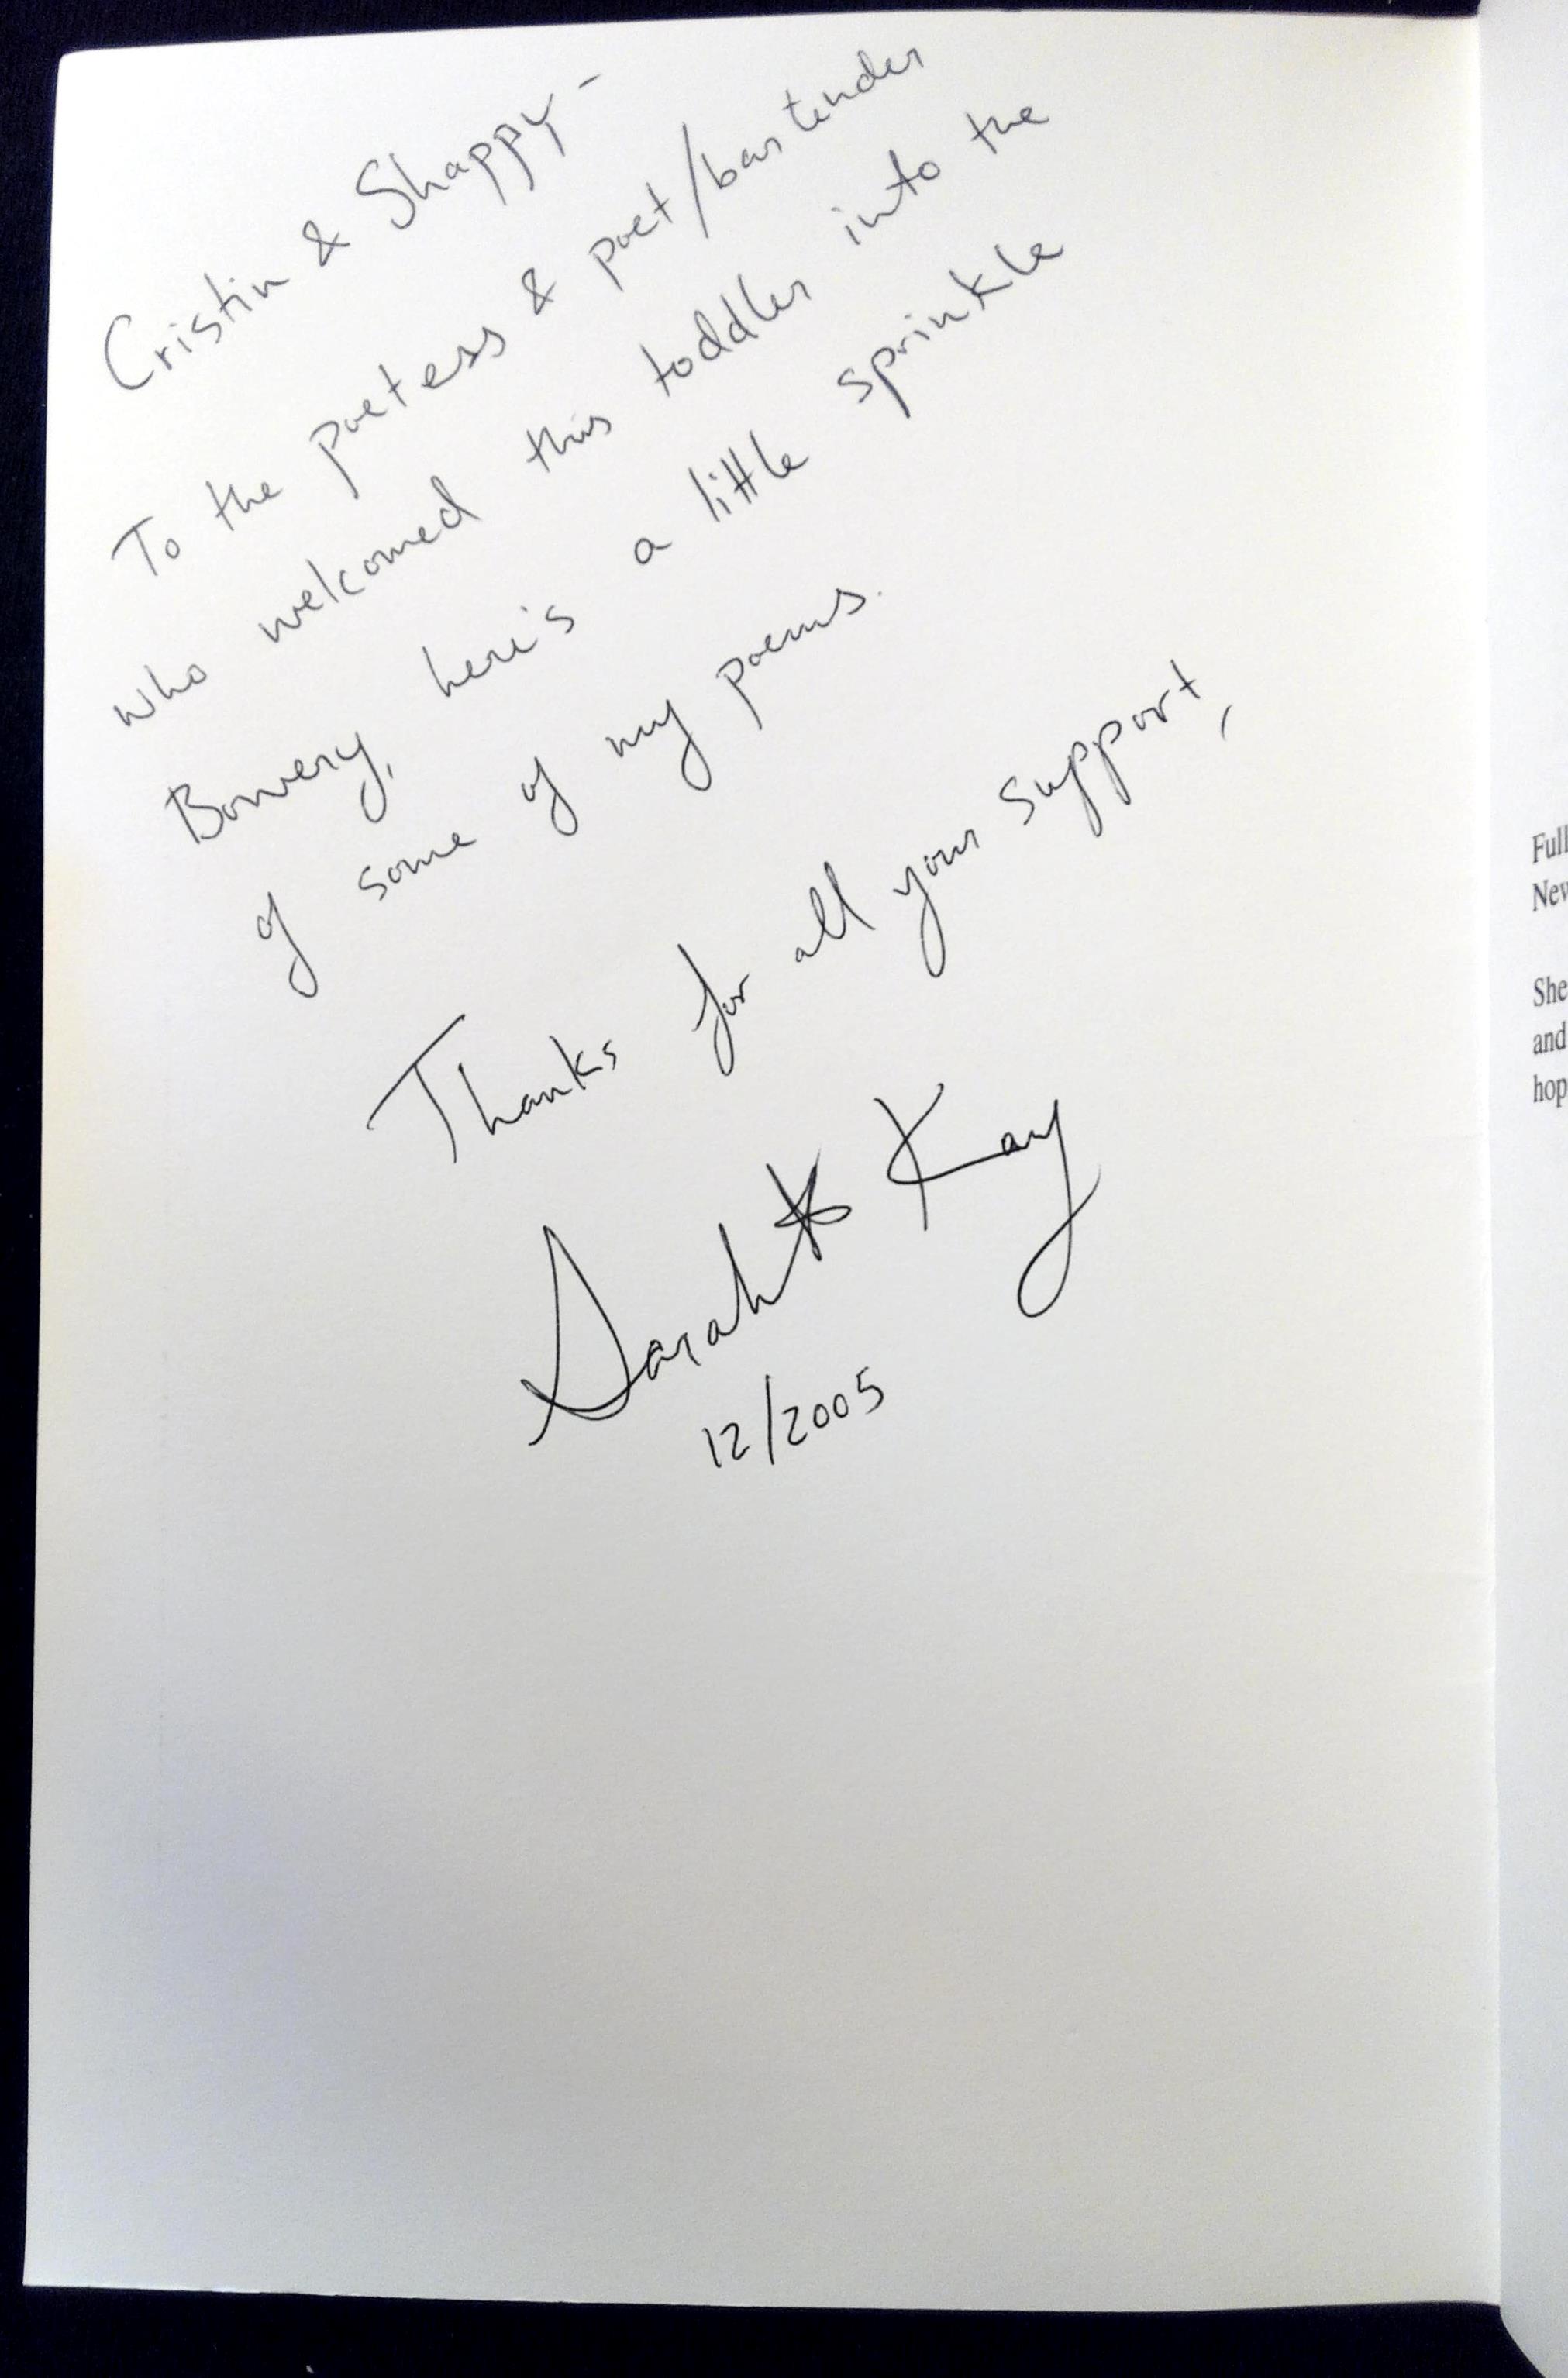 Cristin & Shappy -
To the poetess & poet/bartender
who welcomed this toddler into the
Bowery, here's a little sprinkle
of some of my poems.
Thanks for all your support,
Sarah Kay
12/2005
Full
New
She
and
hop